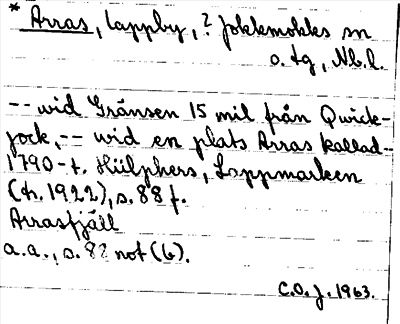 * Arras, lappby, ? Jokkmokks sn
o. tg, Nb.l.
-- wid Gränsen 15 mil från Qwick-
jock, -- wid en plats Arras kallad -
1790-t. Hülphers, Lappmarken
(tr. 1922), s. 88 f.
Arrasfjäll
a.a., s. 82 not (b).
C.O.J. 1963.